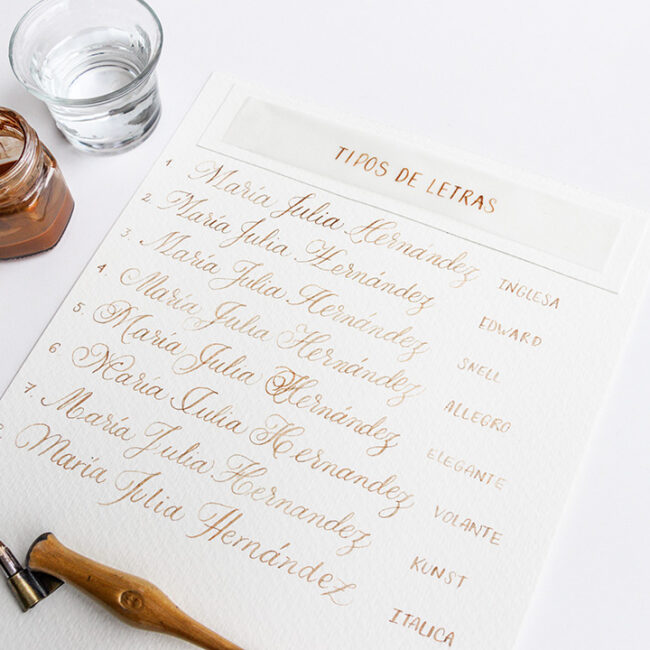 TIPOS DE LETRAS
1 María Julia Hernández INGLESA
2. María Julia Hernández EDWARD
3. María Julia Hernández SNELL
4. María Julia Hernández ALLEGRO
5. María Julia Hernández ELEGANTE
6 María Julia Hernandez VOLANTE
7. María Julia Hernandez KUNST
María Julia Hernández ITALICA